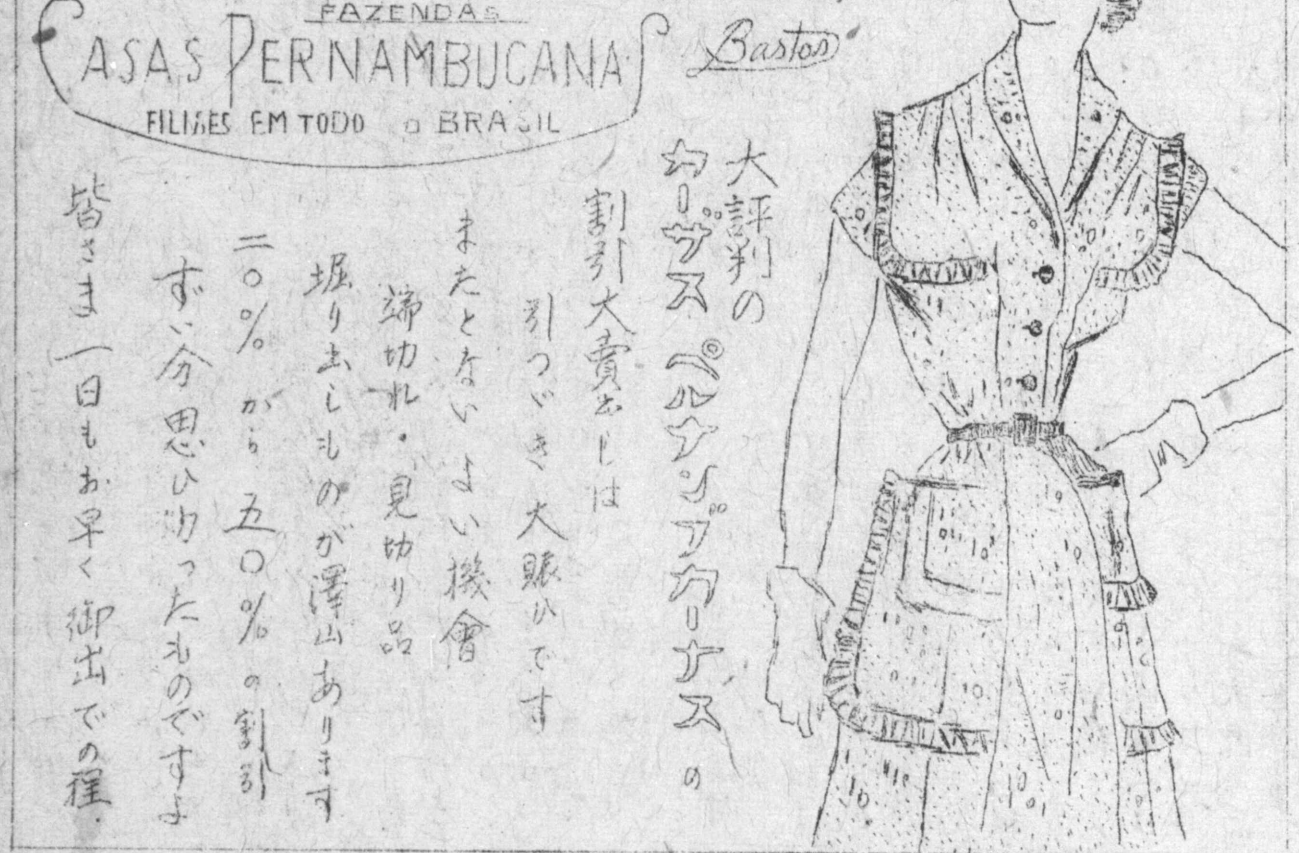 FAZENDAS
CASAS PERNAMBUCANAS
FILIAES EM TODO o BRASIL
Bastos
大評判の
カーザス ペルナンブカーナス の
割引大賣出しは
引つゞき大賑ひです
またとないよい機會
端切れ・見切り品
堀り出しものが澤山あります
二〇%から五〇%の割引
ずい分思ひ切ったものですよ
皆さま一日もお早く御出での程